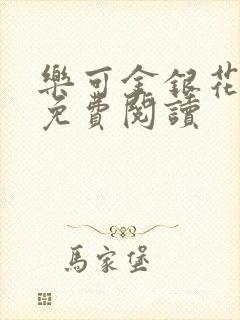 樂可金銀花
免費閱讀
馬家堡